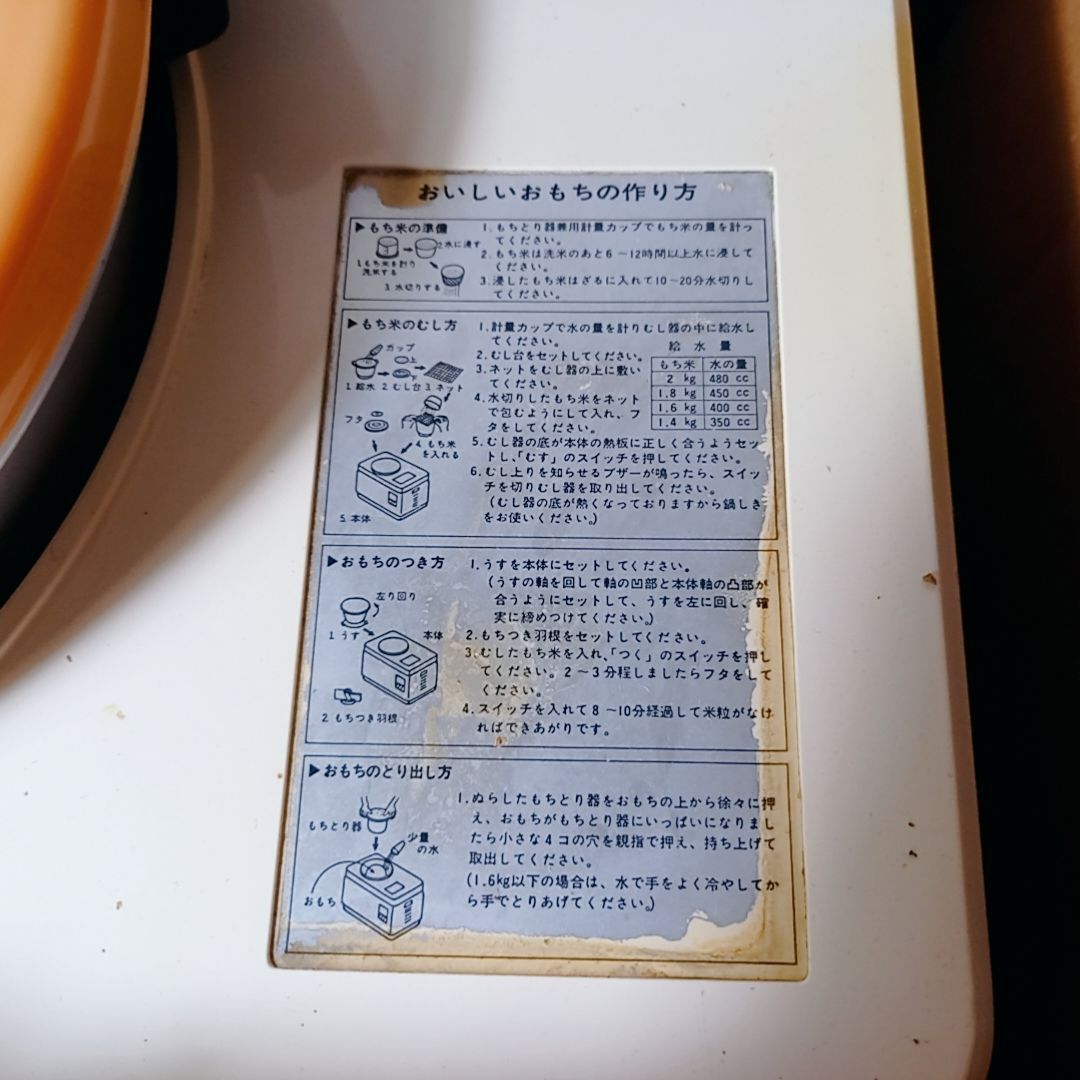 おいしいおもちの作り方
▶もち米の準備
1.もち米を計り
洗米する
2.水に浸す
3.水切りする
1.もちとり器兼用計量カップでもち米の量を計っ
てください。
2.もち米は洗米のあと6～12時間以上水に浸して
ください。
3.浸したもち米はざるに入れて10～20分水切りし
てください。
▶もち米のむし方
カップ
上
下
1.給水 2.むし台 3.ネット
フタ
4.もち米
を入れる
5.本体
1.計量カップで水の量を計りむし器の中に給水し
てください。
2.むし台をセットしてください。
3.ネットをむし器の上に敷い
てください。
4.水切りしたもち米をネット
で包むようにして入れ、フ
タをしてください。
給水量
もち米 水の量
2 kg 480 cc
1.8 kg 450 cc
1.6 kg 400 cc
1.4 kg 350 cc
5.むし器の底が本体の熱板に正しく合うようセッ
トし、「むす」のスイッチを押してください。
6.むし上りを知らせるブザーが鳴ったら、スイッ
チを切りむし器を取り出してください。
(むし器の底が熱くなっておりますから鍋しき
をお使いください。)
▶おもちのつき方
左り回り
1.うす
本体
2.もちつき羽根
1.うすを本体にセットしてください。
(うすの軸を回して軸の凹部と本体軸の凸部が
合うようにセットして、うすを左に回し、確
実に締めつけてください。)
2.もちつき羽根をセットしてください。
3.むしたもち米を入れ、「つく」のスイッチを押し
てください。2～3分程しましたらフタをして
ください。
4.スイッチを入れて8～10分経過して米粒がなけ
ればできあがりです。
▶おもちのとり出し方
もちとり器
少量
の水
おもち
1.ぬらしたもちとり器をおもちの上から徐々に押
え、おもちがもちとり器にいっぱいになりまし
たら小さな4コの穴を親指で押え、持ち上げて
取出してください。
(1.6kg以下の場合は、水で手をよく冷やしてか
ら手でとりあげてください。)